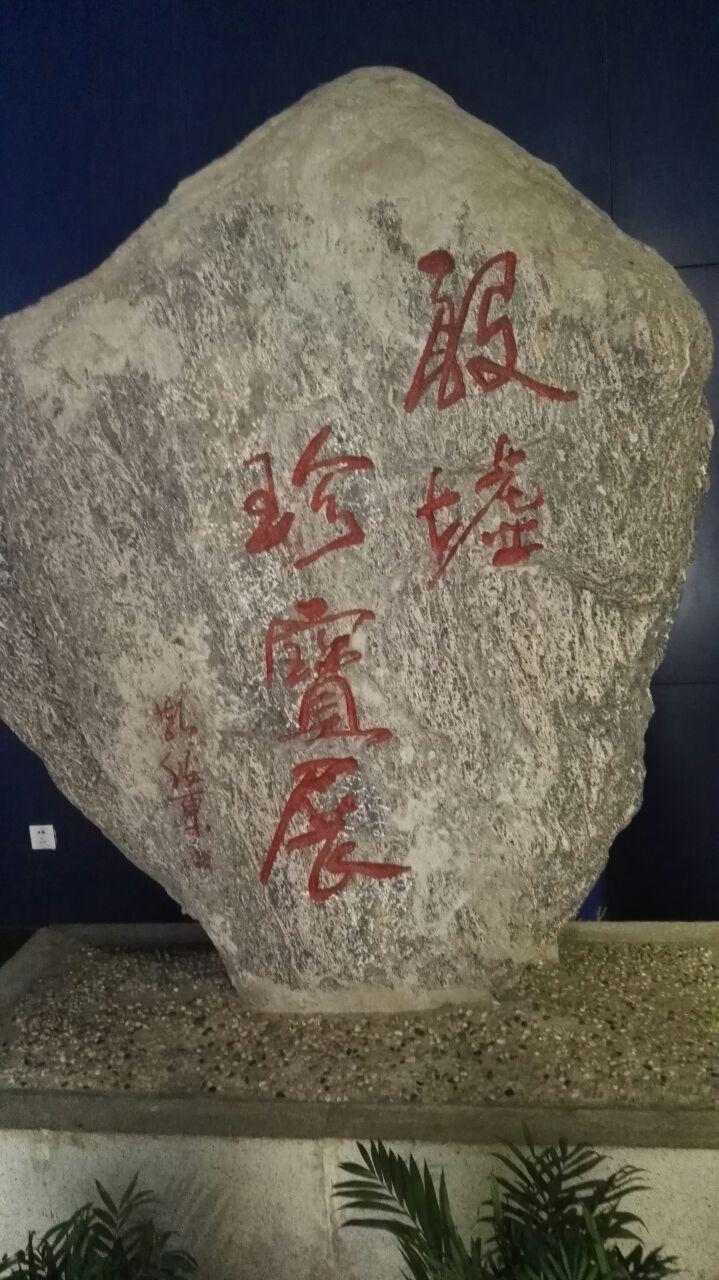 殷墟
珍寶展